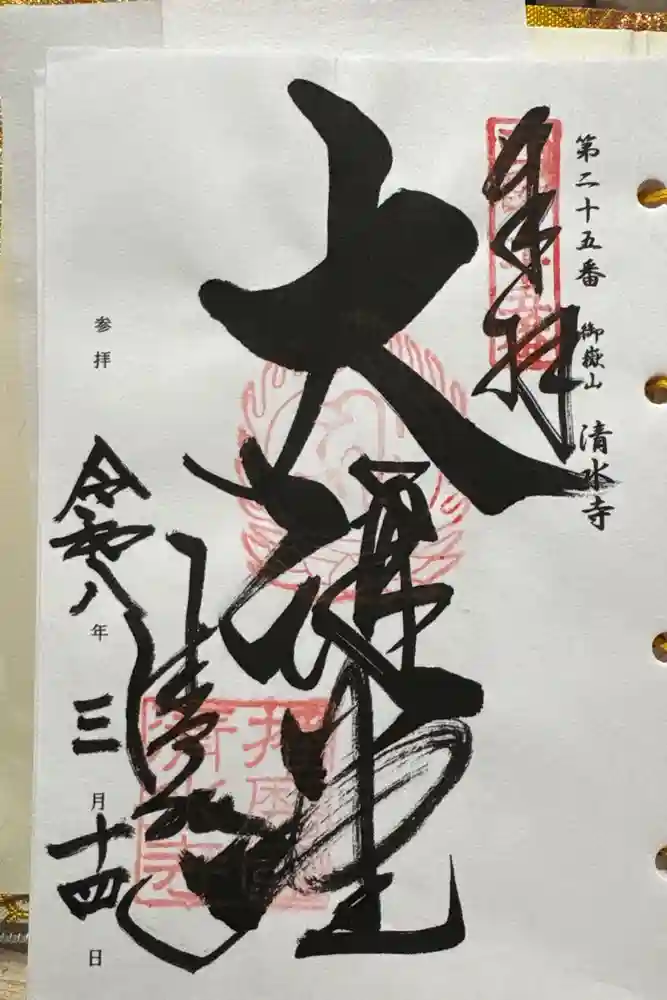 第二十五番 御嶽山 清水寺
奉拝
大
清水寺
参拝 令和八年三月十四日